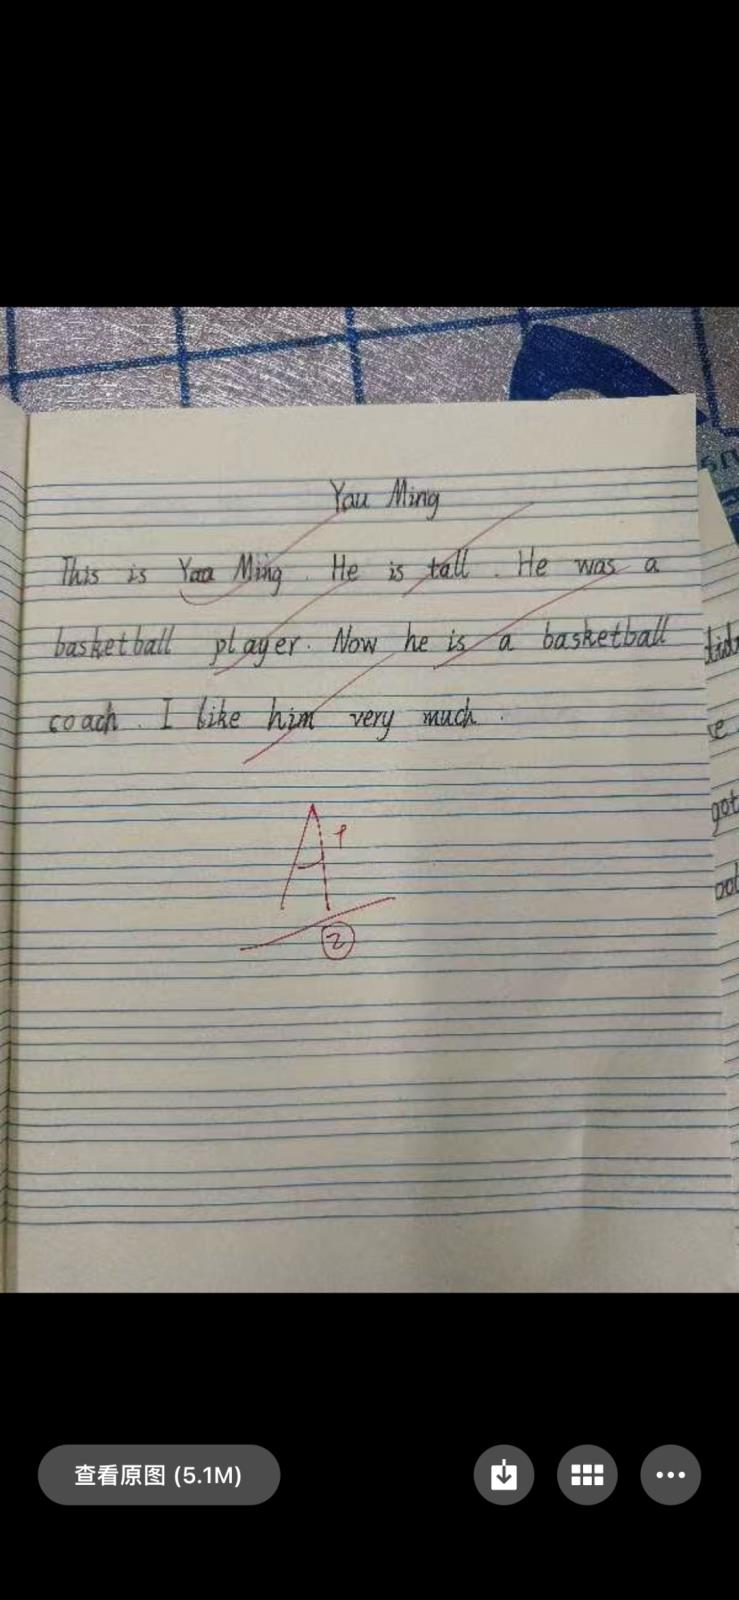 Yau Ming
This is Yaa Ming. He is tall. He was a
basketball player. Now he is a basketball
coach. I like him very much.
A+
2
got
查看原图 (5.1M)